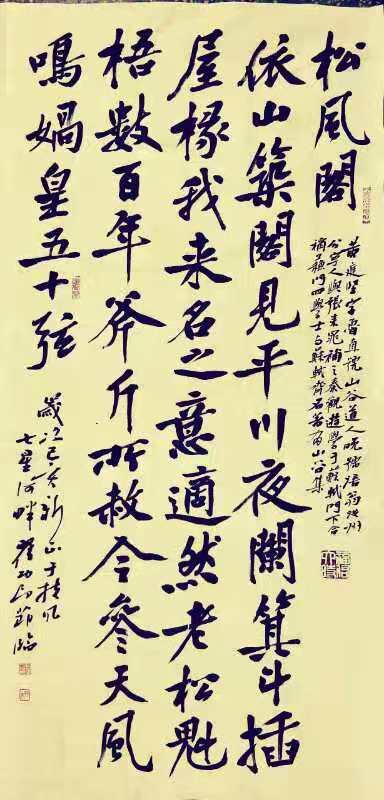 松風閣
依山築閣見平川夜闌箕斗插
屋椽我来名之意適然老松魁
梧數百年斧斤所赦今參天風
鳴媧皇五十弦
黄庭堅字魯直號山谷道人晚號涪翁洪州
分寧人與張耒晁補之秦觀遊學于蘇軾門下合
稱蘇門四學士与蘇軾齊名著有山谷集
歲次己亥新正于桂风
七星河畔
臨